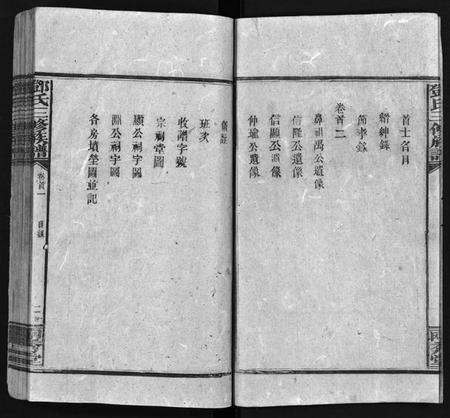 鄧氏三修族譜
首士名目
縉紳錄
節孝錄
卷首二
鼻祖禹公遺像
信隆公遺像
信顯公遺像
仲瑜公遺像
班次
收譜字號
宗祠堂圖
顯公祠宇圖
淵公祠宇圖
各房墳塋圖並記
鄧氏三修族譜
卷首一
目錄
二